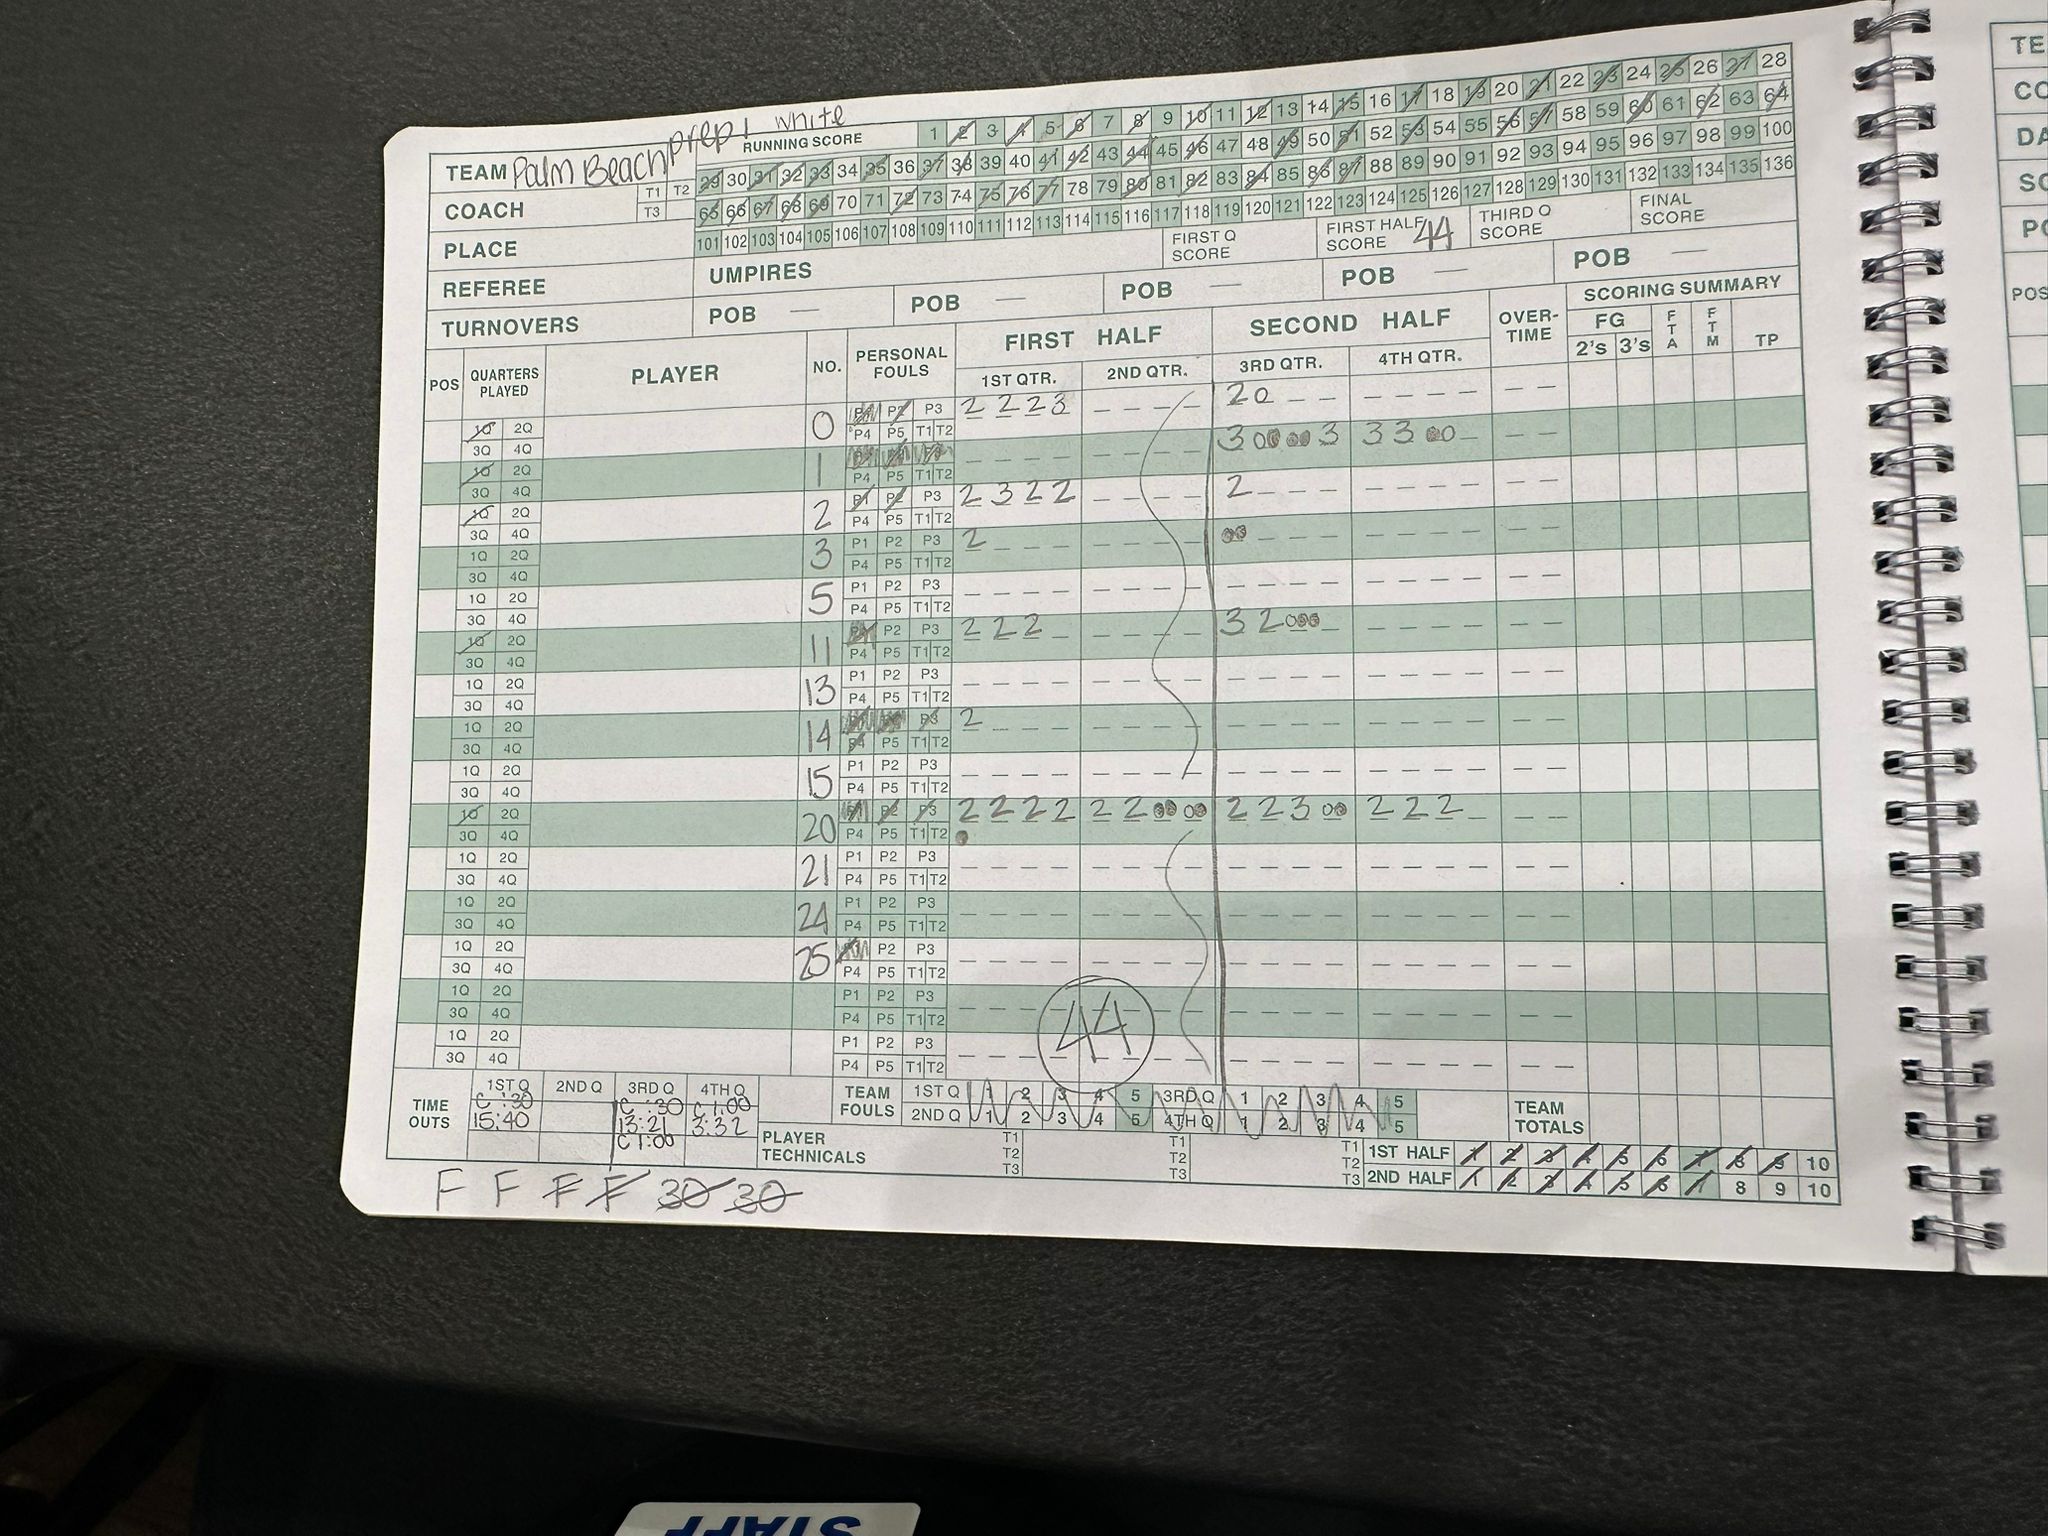 TEAM Palm Beach prep! white
RUNNING SCORE 1 2 3 4 5 6 7 8 9 10 11 12 13 14 15 16 17 18 19 20 21 22 23 24 25 26 27 28
29 30 31 32 33 34 35 36 37 38 39 40 41 42 43 44 45 46 47 48 49 50 51 52 53 54 55 56 57 58 59 60 61 62 63 64
COACH T1 T2 T3
65 66 67 68 69 70 71 72 73 74 75 76 77 78 79 80 81 82 83 84 85 86 87 88 89 90 91 92 93 94 95 96 97 98 99 100
101 102 103 104 105 106 107 108 109 110 111 112 113 114 115 116 117 118 119 120 121 122 123 124 125 126 127 128 129 130 131 132 133 134 135 136
PLACE
FIRST Q SCORE FIRST HALF SCORE 44 THIRD Q SCORE FINAL SCORE
REFEREE UMPIRES
TURNOVERS POB — POB — POB — POB — POB —
POS QUARTERS PLAYED PLAYER NO. PERSONAL FOULS FIRST HALF SECOND HALF OVER-TIME SCORING SUMMARY
1ST QTR. 2ND QTR. 3RD QTR. 4TH QTR. FG 2's 3's FTA FTM TP
1Q 2Q 3Q 4Q 0 P1 P2 P3 P4 P5 T1 T2 2 2 2 3 2 0
1Q 2Q 3Q 4Q 1 P1 P2 P3 P4 P5 T1 T2 3 0 0 0 0 3 3 3 0 0
1Q 2Q 3Q 4Q 2 P1 P2 P3 P4 P5 T1 T2 2 3 2 2 2
1Q 2Q 3Q 4Q 3 P1 P2 P3 P4 P5 T1 T2 2 0 0
1Q 2Q 3Q 4Q 5 P1 P2 P3 P4 P5 T1 T2
1Q 2Q 3Q 4Q 11 P1 P2 P3 P4 P5 T1 T2 2 2 2 3 2 0 0 0
1Q 2Q 3Q 4Q 13 P1 P2 P3 P4 P5 T1 T2
1Q 2Q 3Q 4Q 14 P1 P2 P3 P4 P5 T1 T2 2
1Q 2Q 3Q 4Q 15 P1 P2 P3 P4 P5 T1 T2
1Q 2Q 3Q 4Q 20 P1 P2 P3 P4 P5 T1 T2 2 2 2 2 2 2 0 0 0 0 2 2 3 0 0 2 2 2
1Q 2Q 3Q 4Q 21 P1 P2 P3 P4 P5 T1 T2
1Q 2Q 3Q 4Q 24 P1 P2 P3 P4 P5 T1 T2
1Q 2Q 3Q 4Q 25 P1 P2 P3 P4 P5 T1 T2
1Q 2Q 3Q 4Q P1 P2 P3 P4 P5 T1 T2
1Q 2Q 3Q 4Q P1 P2 P3 P4 P5 T1 T2
44
TIME OUTS 1ST Q 2ND Q 3RD Q 4TH Q
C :30 C :30 C 1:00
15:40 13:21 3:32
C 1:00
TEAM FOULS 1ST Q 1 2 3 4 5 3RD Q 1 2 3 4 5
2ND Q 1 2 3 4 5 4TH Q 1 2 3 4 5
TEAM TOTALS
PLAYER TECHNICALS T1 T2 T3 T1 T2 T3 T1 T2 T3
1ST HALF 1 2 3 4 5 6 7 8 9 10
2ND HALF 1 2 3 4 5 6 7 8 9 10
F F F F 30 30
TE
CO
DA
SC
PO
POS
STAFF